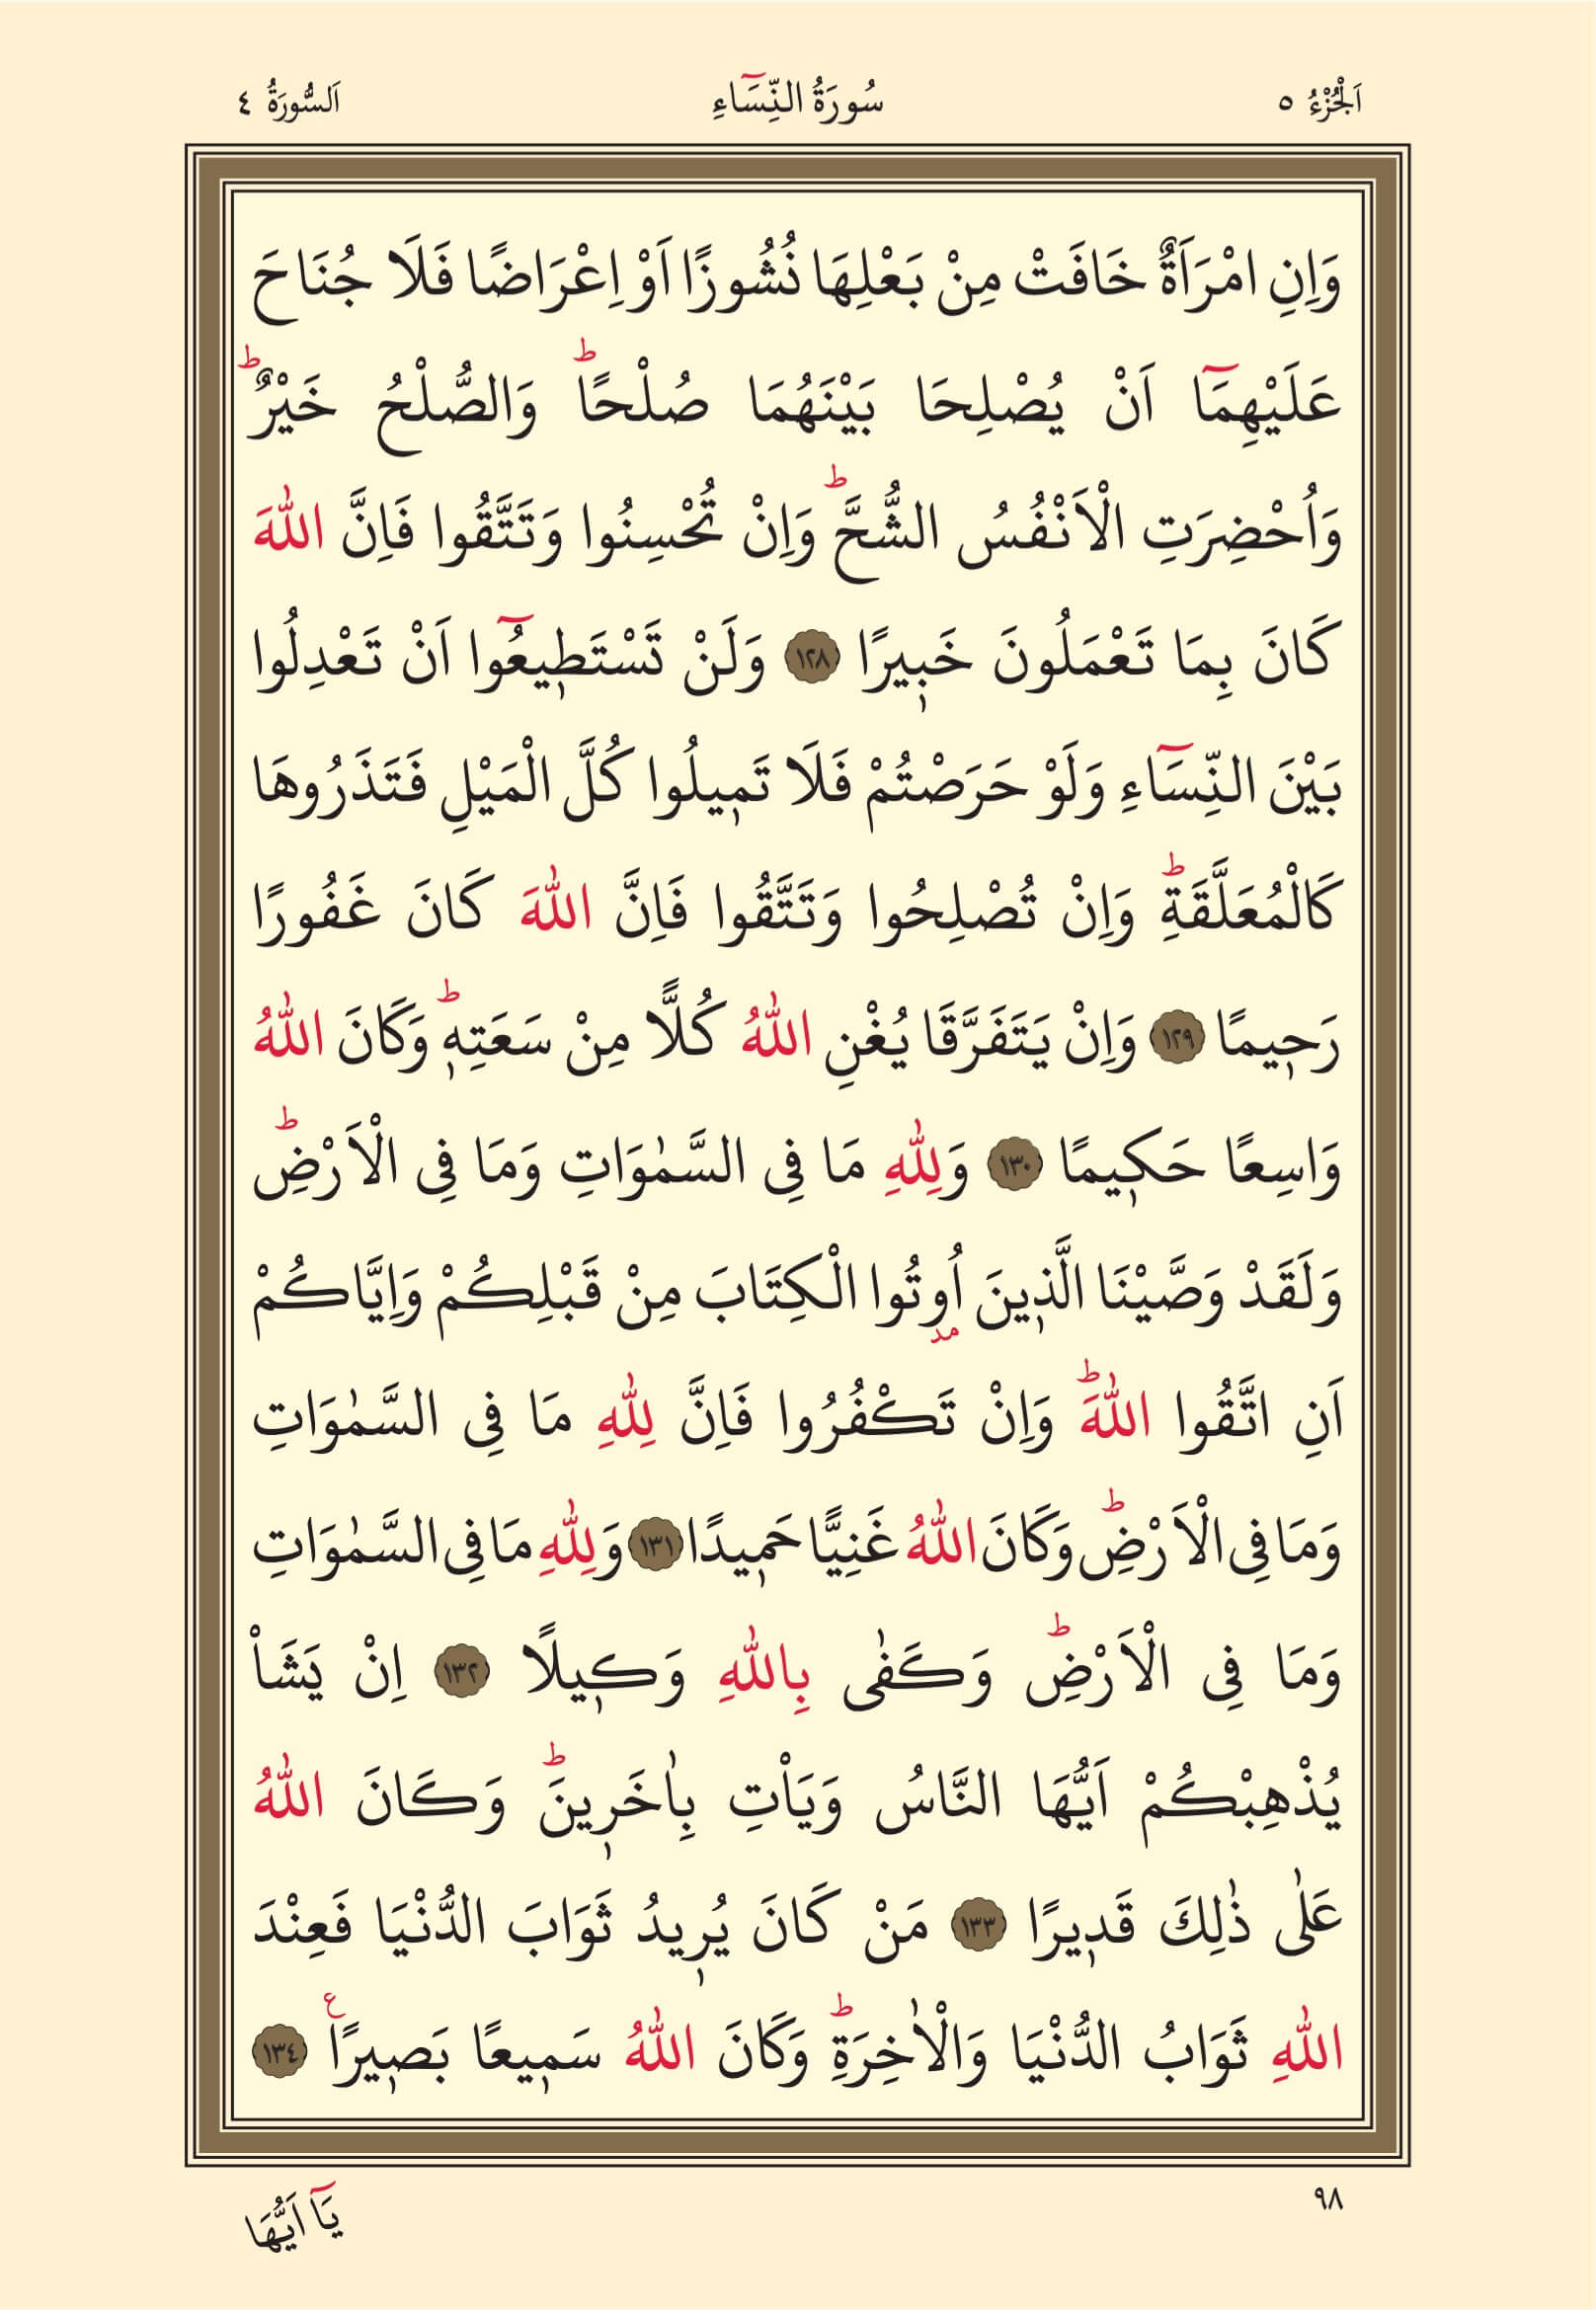 اَلْجُزْءُ ٥ سُورَةُ النِّسَٓاءِ اَلسُّورَةُ ٤
وَاِنِ امْرَاَةٌ خَافَتْ مِنْ بَعْلِهَا نُشُوزًا اَوْ اِعْرَاضًا فَلَا جُنَاحَ
عَلَيْهِمَٓا اَنْ يُصْلِحَا بَيْنَهُمَا صُلْحًاۜ وَالصُّلْحُ خَيْرٌۜ
وَاُحْضِرَتِ الْاَنْفُسُ الشُّحَّۜ وَاِنْ تُحْسِنُوا وَتَتَّقُوا فَاِنَّ اللّٰهَ
كَانَ بِمَا تَعْمَلُونَ خَب۪يرًا ١٢٨ وَلَنْ تَسْتَط۪يعُٓوا اَنْ تَعْدِلُوا
بَيْنَ النِّسَٓاءِ وَلَوْ حَرَصْتُمْ فَلَا تَم۪يلُوا كُلَّ الْمَيْلِ فَتَذَرُوهَا
كَالْمُعَلَّقَةِۜ وَاِنْ تُصْلِحُوا وَتَتَّقُوا فَاِنَّ اللّٰهَ كَانَ غَفُورًا
رَح۪يمًا ١٢٩ وَاِنْ يَتَفَرَّقَا يُغْنِ اللّٰهُ كُلًّا مِنْ سَعَتِه۪ۜ وَكَانَ اللّٰهُ
وَاسِعًا حَك۪يمًا ١٣٠ وَلِلّٰهِ مَا فِي السَّمٰوَاتِ وَمَا فِي الْاَرْضِۜ
وَلَقَدْ وَصَّيْنَا الَّذ۪ينَ اُو۫تُوا الْكِتَابَ مِنْ قَبْلِكُمْ وَاِيَّاكُمْ
اَنِ اتَّقُوا اللّٰهَۜ وَاِنْ تَكْفُرُوا فَاِنَّ لِلّٰهِ مَا فِي السَّمٰوَاتِ
وَمَا فِي الْاَرْضِۜ وَكَانَ اللّٰهُ غَنِيًّا حَم۪يدًا ١٣١ وَلِلّٰهِ مَا فِي السَّمٰوَاتِ
وَمَا فِي الْاَرْضِۜ وَكَفٰى بِاللّٰهِ وَك۪يلًا ١٣٢ اِنْ يَشَأْ
يُذْهِبْكُمْ اَيُّهَا النَّاسُ وَيَأْتِ بِاٰخَر۪ينَۜ وَكَانَ اللّٰهُ
عَلٰى ذٰلِكَ قَد۪يرًا ١٣٣ مَنْ كَانَ يُر۪يدُ ثَوَابَ الدُّنْيَا فَعِنْدَ
اللّٰهِ ثَوَابُ الدُّنْيَا وَالْاٰخِرَةِۜ وَكَانَ اللّٰهُ سَم۪يعًا بَص۪يرًا۟ ١٣٤
٩٨ يَٓا اَيُّهَا